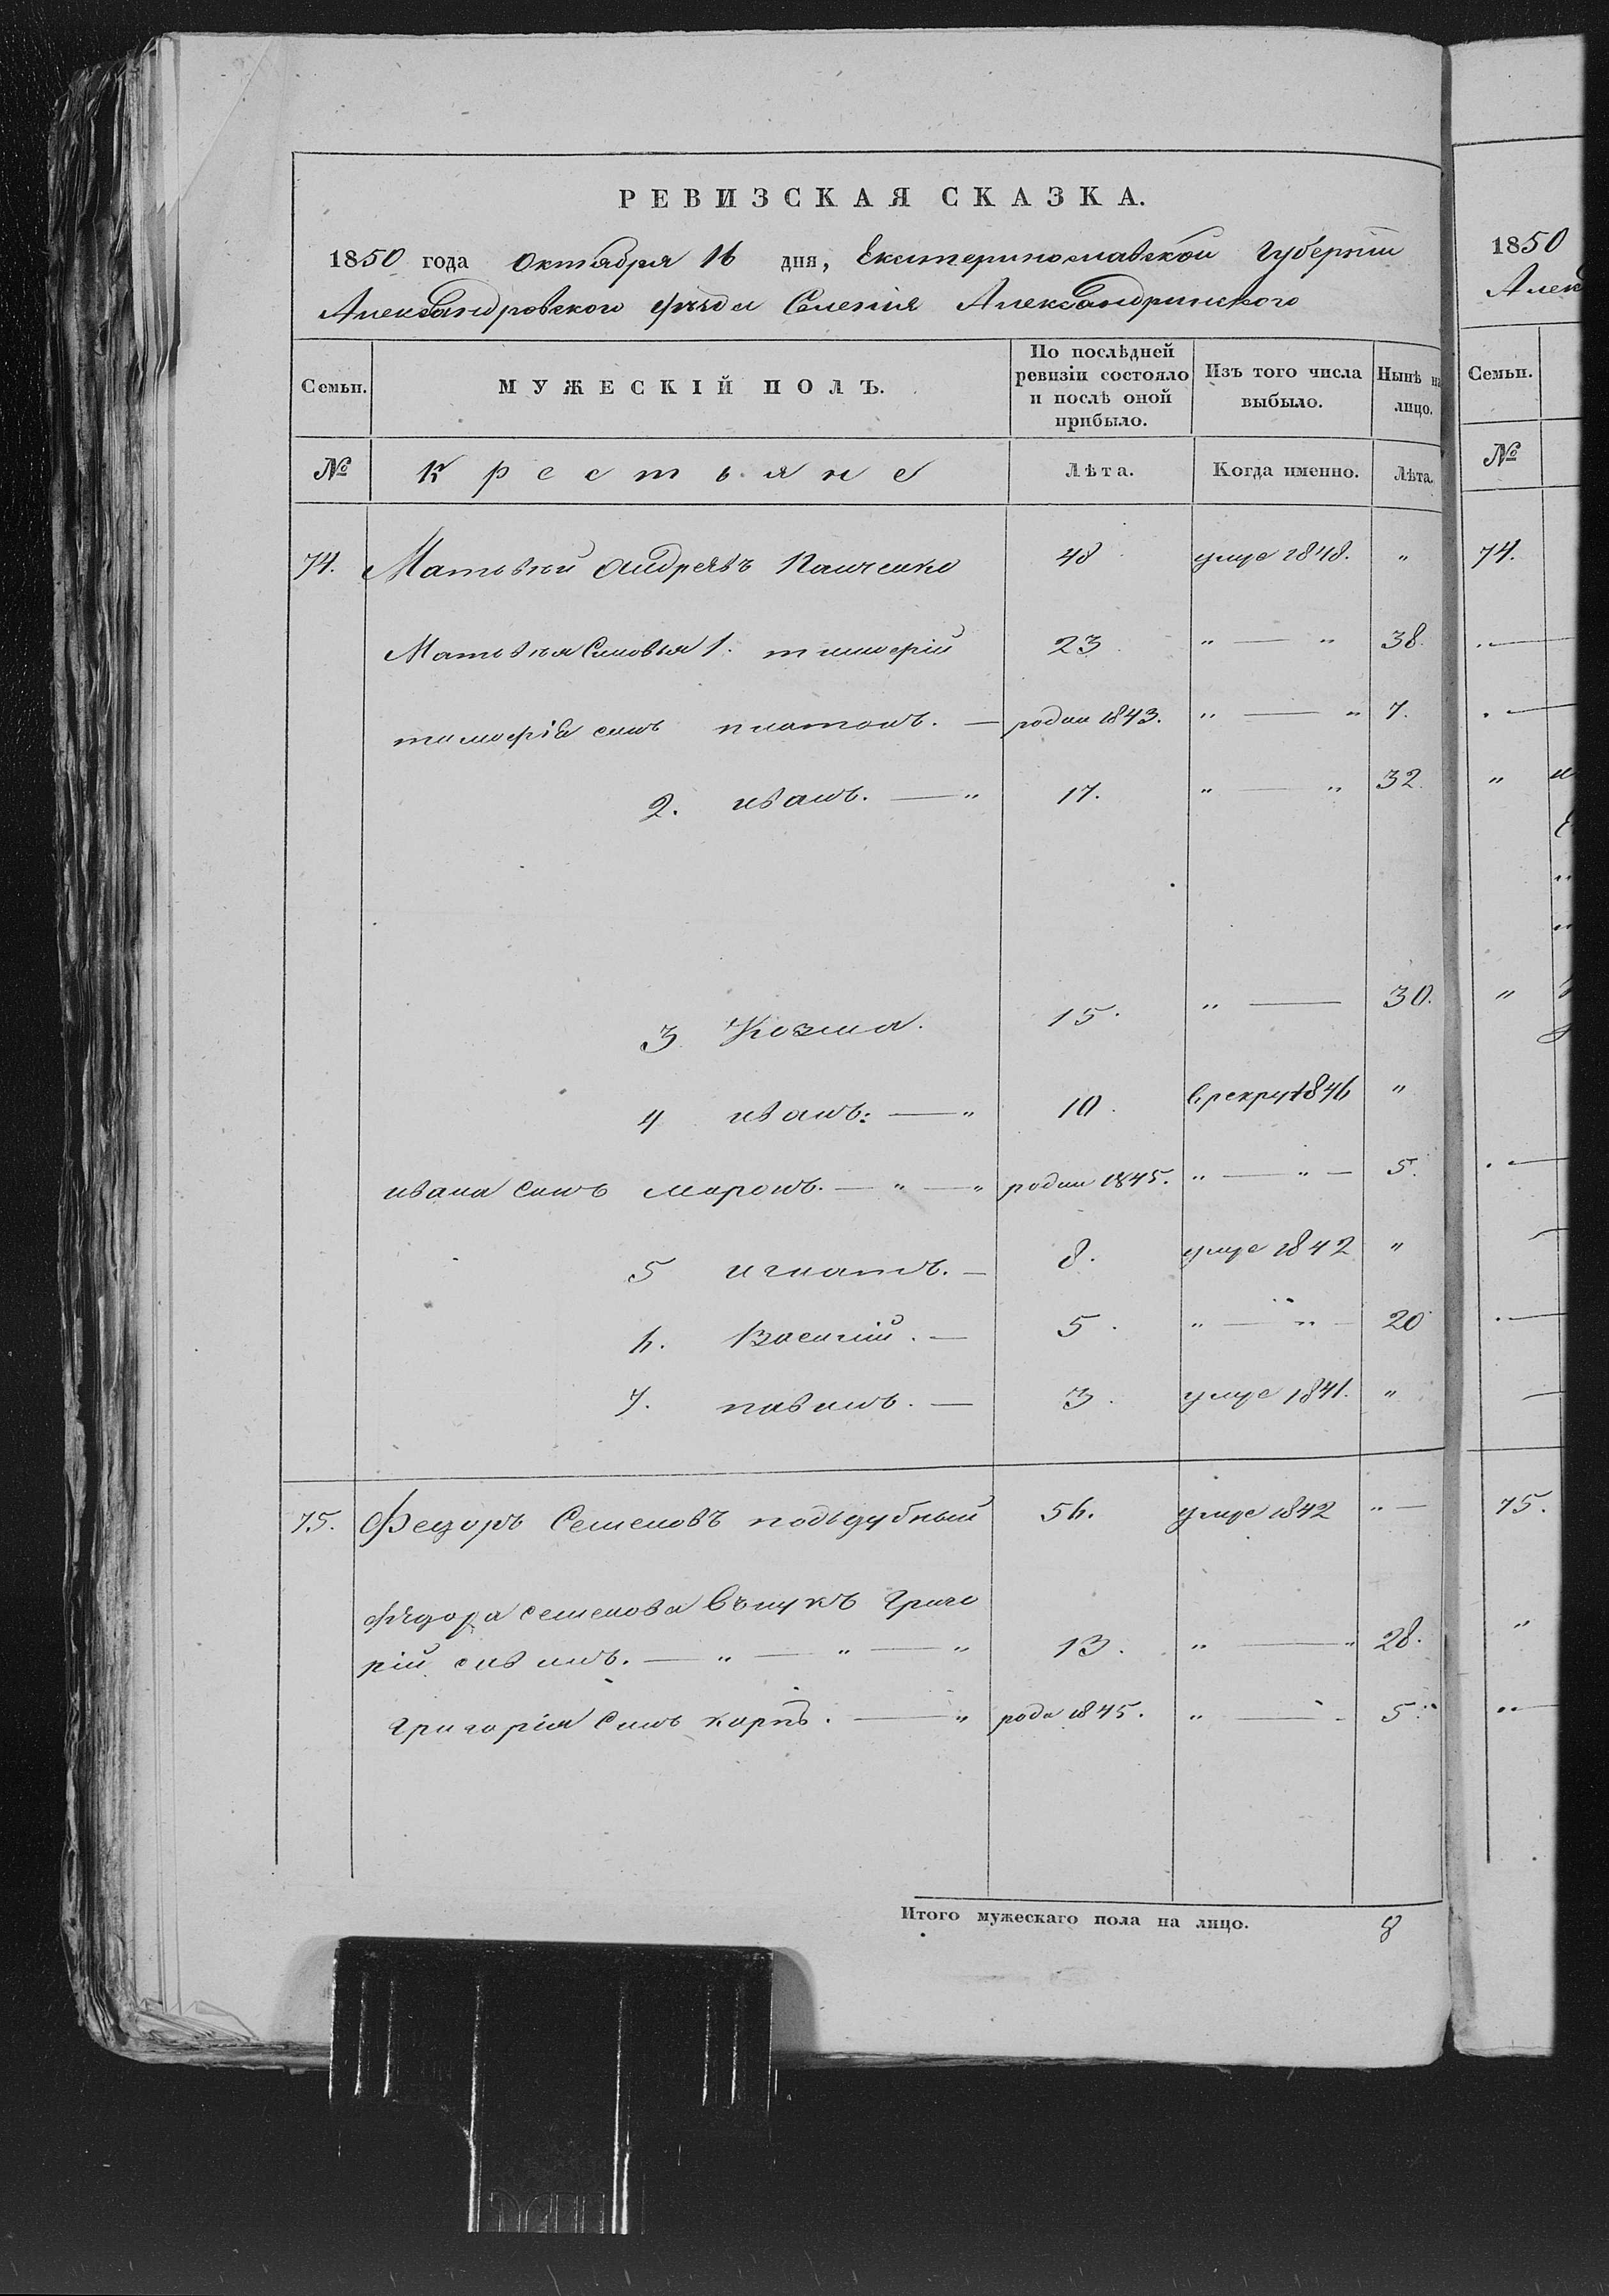 РЕВИЗСКАЯ СКАЗКА.
1850 года Октября 16 дня, Екатеринославской Губернии
Александровского уѣзда Селенія Александринского
Семьи. МУЖЕСКІЙ ПОЛЪ. По послѣдней ревизіи состояло и послѣ оной прибыло. Изъ того числа выбыло. Нынѣ на лицо.
№ Крестьяне Лѣта. Когда именно. Лѣта.
74. Матвѣй Андреевъ Панченко 48 умре 1848. "
Матвѣя Сыновья 1. тимофій 23 " — " 38.
тимофія сынъ платонъ. — родил 1843. " — " 7.
2. иванъ. — " 17. " — " 32.
3 Козма. 15. " — 30.
4 иванъ: — " 10. в рекрут 1846 "
ивана сынъ миронъ. — " — " родил 1845. " — " — 5.
5 игнатъ. — 8. умре 1842 "
6. Василій. — 5. " — " — 20
7. павилъ. — 3. умре 1841. "
75. Федоръ Семеновъ подъдубный 56. умре 1842 " —
Федора семенова внукъ Григо
рій — " — " — " 13. " — " 28.
Григорія Сынъ карпъ. — " роди 1845. " — 5.
Итого мужескаго пола на лицо. 8
1850
Алек
Семьи.
№
74.
75.